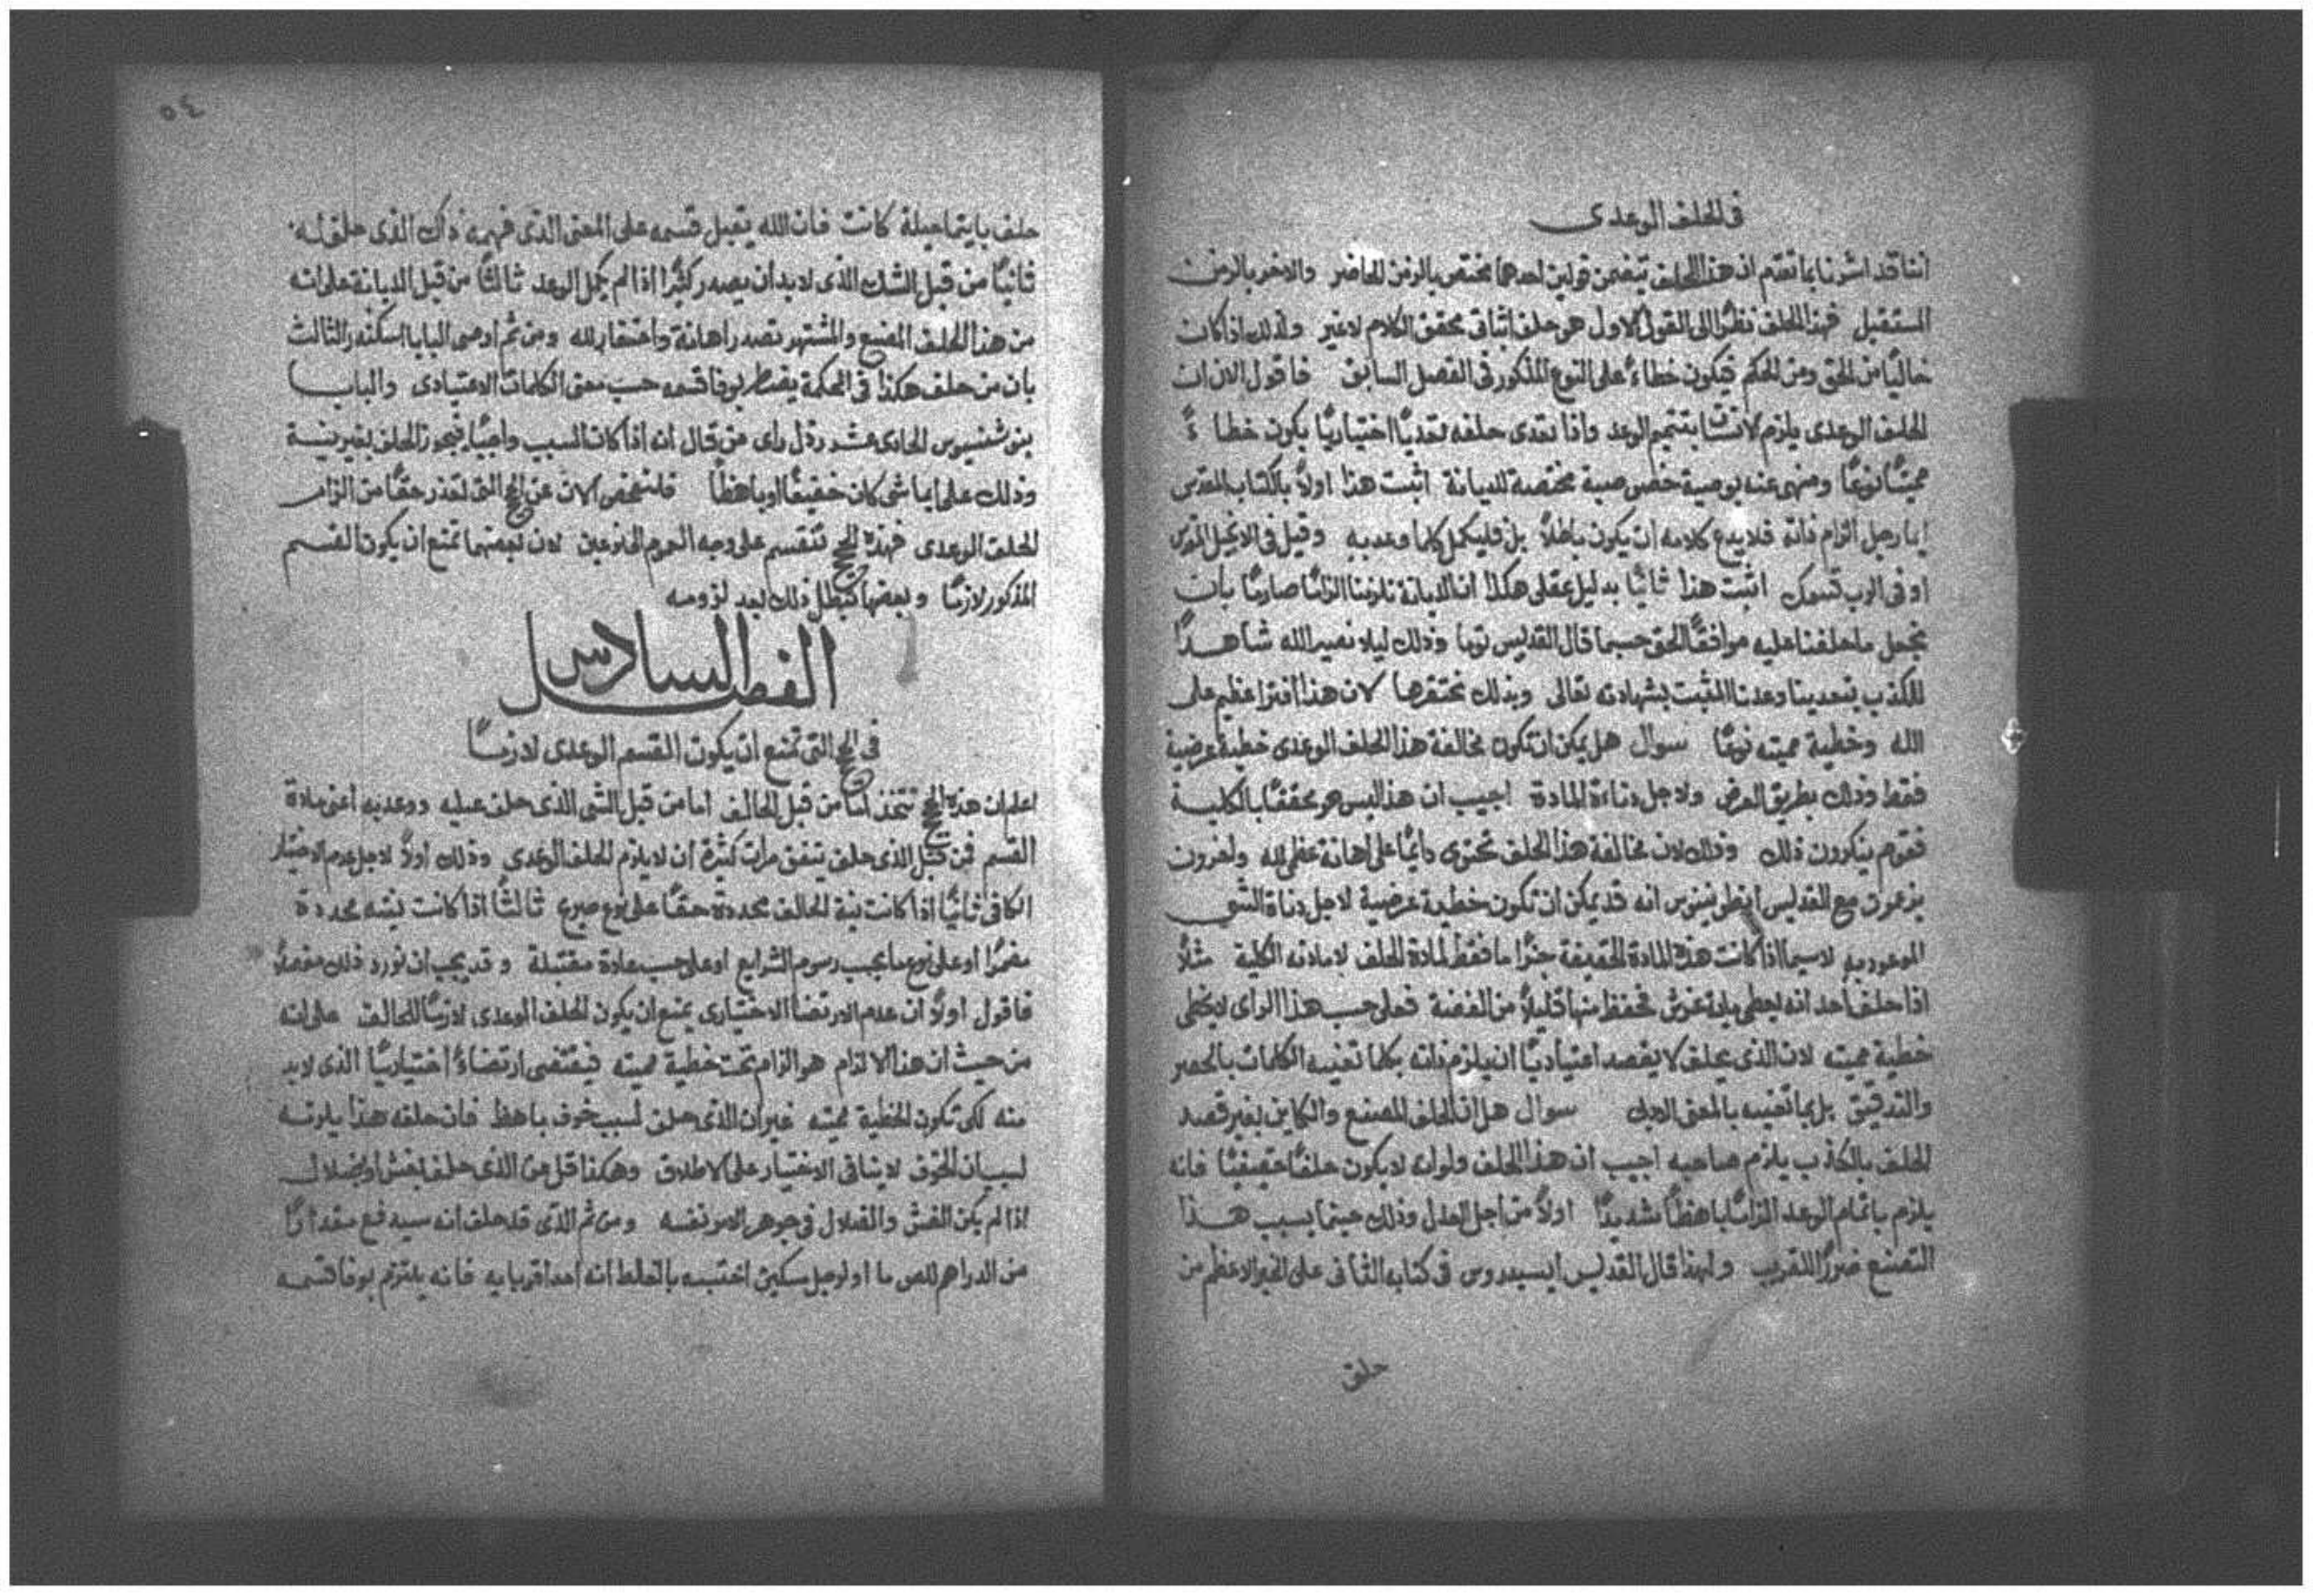 في الحلف الوعدي
اننا قد اشرنا بما تقدم ان هذا الحلف يتضمن قولين احدهما مختص بالزمن الحاضر والاخر بالزمن
المستقبل فهذا الحلف نظرًا الى القول الاول هو حلف اثباتي محقق الكلام لا غير ولذلك اذا كان
خاليًا من الحق ومن الحكم فيكون خطاءً على النوع المذكور في الفصل السابق فاقول الان ان
الحلف الوعدي يلزم الانسان بتتميم الوعد واذا تعدى حلفه تعديًا اختياريًا يكون خطاءً
مميتًا نوعًا ومنهي عنه بوصية خصوصية مختصة للديانة اثبت هذا اولاً بالكتاب المقدس
ايما رجل الزم ذاته فلا يدع كلامه ان يكون باطلاً بل فليكمل كلما وعد به وقيل في الانجيل المقدس
اوفي الرب قسمك اثبت هذا ثانيًا بدليل عقلي هكذا ان الديانة تلزمنا الزامًا صارمًا بان
نجعل ما حلفنا عليه موافقًا للحق حسبما قال القديس توما وذلك ليلا نصير الله شاهدًا
للكذب بتعدينا وعدنا المثبت بشهادته تعالى وبذلك نحتقرها لان هذا افترا عظيم على
الله وخطية مميته نوعًا سوال هل يمكن ان تكون مخالفة هذا الحلف الوعدي خطية عرضية
فقط وذلك بطريق العرض ولاجل دناءة المادة اجيب ان هذا ليس هو محققًا بالكلية
فقوم ينكرون ذلك وذلك لان مخالفة هذا الحلف تحتوي دايمًا على اهانة عظمى لله واخرون
يزعمون مع القديس انطونينوس انه قد يمكن ان تكون خطية عرضية لاجل دناة الشي
الموعود به لا سيما اذا كانت هذه المادة الخفيفة جزًا ما فقط لمادة الحلف لا مادته الكلية مثلاً
اذا حلف احد انه يعطي ماية غرش فحفظ منها قليلاً من الفضة فعلى حسب هذا الراي لا يخطي
خطية مميته لان الذي يحلف لا يقصد اعتياديًا ان يلزم ذاته بكلما تعنيه الكلمات بالحصر
والتدقيق بل بما تعنيه بالمعنى سوال هل ان الحلف المصنع والكاين بغير قصد
الحلف بالكذب يلزم صاحبه اجيب ان هذا الحلف ولو انه لا يكون حلفًا حقيقيًا فانه
يلزم باتمام الوعد الزامًا باهظًا شديدًا اولاً من اجل العدل وذلك حينما يسبب هذا
التصنع ضررًا للقريب ولهذا قال القديس ايسيدروس في كتابه الثاني على الخير الاعظم من
حلف
٥٤
حلف بايتما حيلة كانت فان الله يقبل قسمه على المعنى الذي فهمه ذاك الذي حلف له
ثانيًا من قبل الشك الذي لا بد ان يصدر كثيرًا اذا لم يكمل الوعد ثالثًا من قبل الديانة على انه
من هذا الحلف المصنع والمشتهر تصدر اهانة واحتقار لله ومن ثم اوصى البابا اسكندر الثالث
بان من حلف هكذا في المحكمة يضطر بوفا قسمه حسب معنى الكلمات الاعتيادي والبابا
اينوشنسيوس الحادي عشر رذل راي من قال انه اذا كان السبب واجبًا فيجوز الحلف بغير نية
وذلك على ايما شي كان خفيفًا او باهظًا فلنتفحص الان عن الحجج التي تعذر حقًا من الزام
الحلف الوعدي فهذه الحجج تنقسم على وجه العموم الى نوعين لان بعضها تمنع ان يكون القسم
المذكور لازمًا وبعضها تبطل ذلك بعد لزومه
الفصل السادس
في الحجج التي تمنع ان يكون القسم الوعدي لازمًا
اعلم ان هذه الحجج تتخذ اما من قبل الحالف اما من قبل الشي الذي حلف عليه ووعد به اعني مادة
القسم فمن قبل الذي حلف يتفق مرات كثيرة ان لا يلزم الحلف الوعدي وذلك اولاً لاجل عدم الاختيار
الكافي ثانيًا اذا كانت نية الحالف محددة حقًا على نوع صريح ثالثًا اذا كانت نيته محددة
مضمرًا او على نوع ما بحسب رسوم الشرايع او على حسب عادة مقتبلة وقد يجب ان نورد ذلك مفصلاً
فاقول اولاً ان عدم الارتضا الاختياري يمنع ان يكون الحلف الوعدي لازمًا للحالف على انه
من حيث ان هذا الالزام هو الزام تحت خطية مميته فيقتضي ارتضاءً اختياريًا الذي لا بد
منه لكي تكون الخطية مميته غير ان الذي حلف لسبب خوف باهظ فان حلفه هذا يلزمه
لسبب ان الخوف لا ينافي الاختيار على الاطلاق وهكذا قل عن الذي حلف بغش او بضلال
اذا لم يكن الغش والضلال في جوهر الامر نفسه ومن ثم الذي قد حلف انه سيدفع مقدارًا
من الدراهم للص ما او لرجل مسكين احتسبه بالغلط انه احد اقربايه فانه يلتزم بوفا قسمه